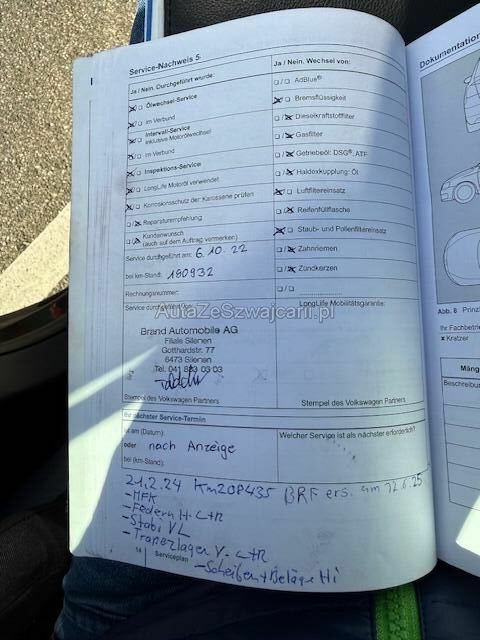 Service-Nachweis 5
Ja / Nein. Durchgeführt wurde:
Ölwechsel-Service
im Verbund
Intervall-Service
inklusive Motorölwechsel
im Verbund
Inspektions-Service
LongLife Motoröl verwendet
Korrosionsschutz der Karosserie prüfen
Reparaturempfehlung
Kundenwunsch
(auch auf dem Auftrag vermerken)
Service durchgeführt am: 6.10.22
bei km-Stand: 180932
Rechnungsnummer:
Service durchgeführt von:
Brand Automobile AG
Filiale Silenen
Gotthardstr. 77
6473 Silenen
Tel. 041 883 03 03
Stempel des Volkswagen Partners
Ja / Nein. Wechsel von:
AdBlue®
Bremsflüssigkeit
Dieselkraftstofffilter
Gasfilter
Getriebeöl: DSG®, ATF
Haldexkupplung: Öl
Luftfiltereinsatz
Reifenfüllflasche
Staub- und Pollenfiltereinsatz
Zahnriemen
Zündkerzen
LongLife Mobilitätsgarantie:
Stempel des Volkswagen Partners
AutaZeSzwajcarii.pl
Ihr nächster Service-Termin
ist am (Datum):
oder nach Anzeige
bei (km-Stand):
Welcher Service ist als nächster erforderlich?
21.2.24 Km209435 BRF ers. am 12.6.25
-MFK
-Federn H L+R
-Stabi VL
-Trapezlagen V. L+R
-Scheiben + Beläge Hi
14 Serviceplan
Dokumentation
Abb. 8 Prinzi
Ihr Fachbetrie
x Kratzer
Mäng
Beschreibun